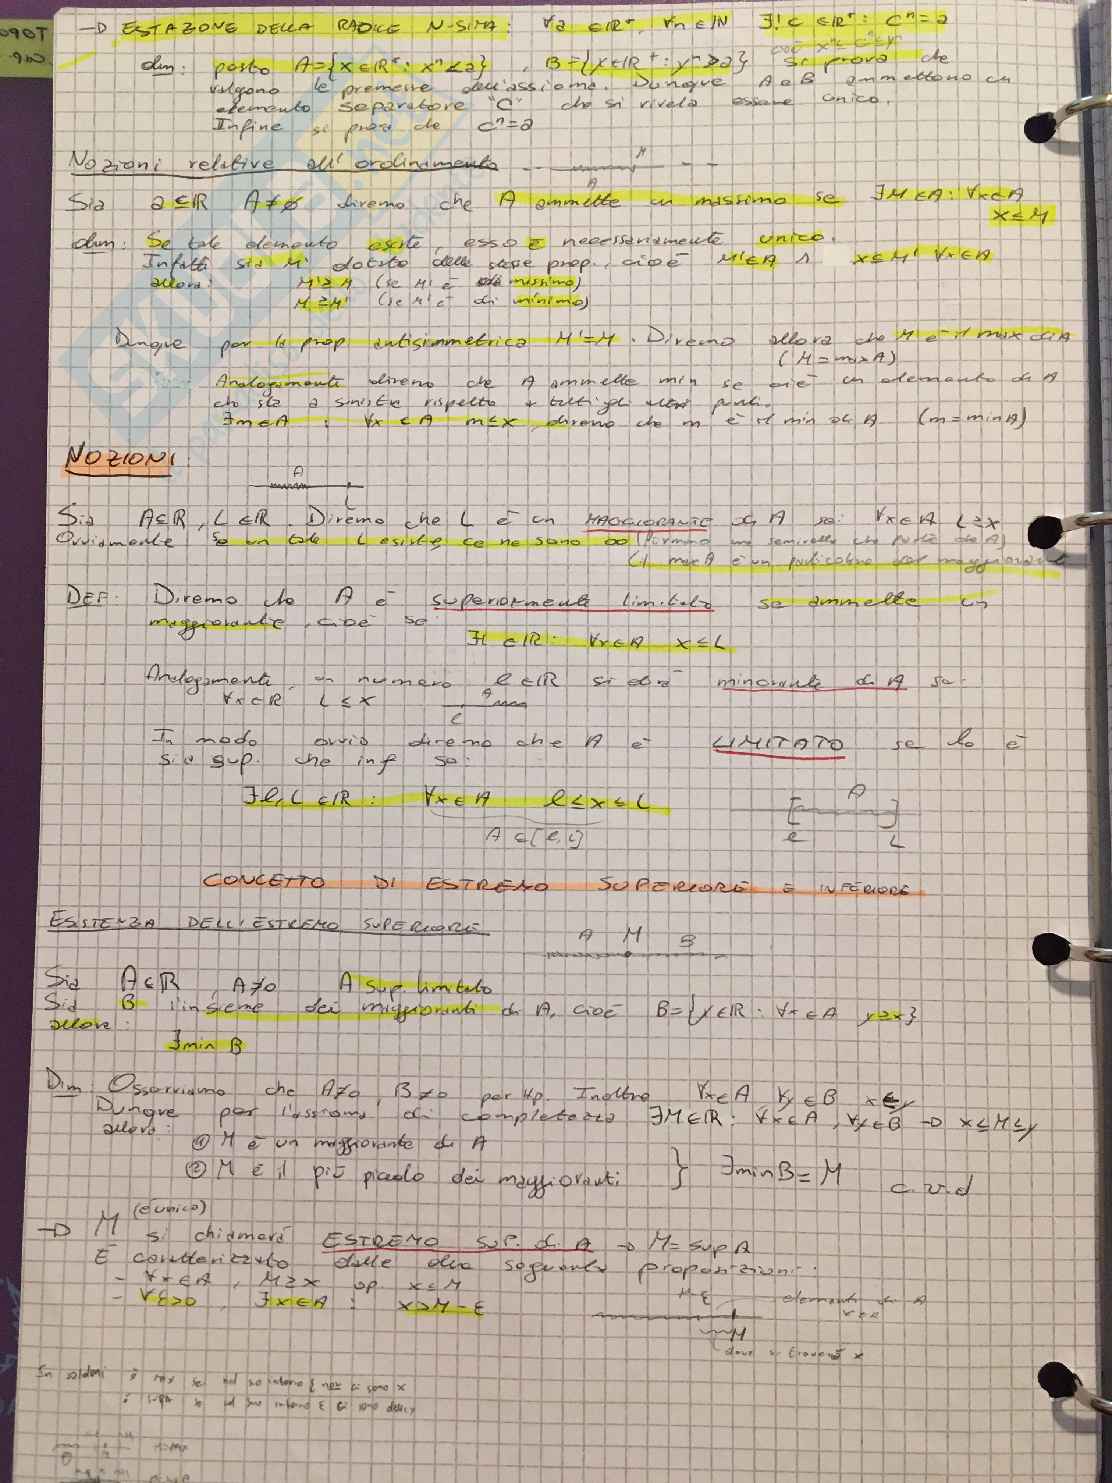 → ESTAZIONE DELLA RADICE N-SIMA: ∀a ∈ℝ⁺, ∀n∈ℕ ∃! C ∈ℝ⁺: Cⁿ=a
dim: posto A={x∈ℝ⁺: xⁿ≤a}, B={y∈ℝ⁺: yⁿ≥a} si prova che
valgono le premesse dell'assioma. Dunque A e B ammettono un
elemento separatore "C" che si rivela essere unico.
Infine si prova che Cⁿ=a
Nozioni relative all'ordinamento
M
A
Sia a⊆ℝ A≠∅ diremo che A ammette un massimo se ∃M∈A: ∀x∈A
x≤M
dim: Se tale elemento esiste, esso è necessariamente unico.
Infatti sia M' dotato delle stesse prop., cioè M'∈A ∧ x≤M' ∀x∈A
allora: M'≥M (se M' è massimo)
M≥M' (se M' è di minimo)
Dunque per la prop antisimmetrica M'=M. Diremo allora che M è il max di A
(M=maxA)
Analogamente diremo che A ammette min se c'è un elemento di A
che sta a sinistra rispetto a tutti gli altri punti.
∃m∈A : ∀x∈A m≤x, diremo che m è il min di A (m=minA)
NOZIONI:
A
L
Sia A⊆ℝ, L∈ℝ. Diremo che L è un MAGGIORANTE di A se: ∀x∈A L≥x
Ovviamente se un tale L esiste, ce ne sono ∞ (formano una semiretta che parte da A)
(il maxA è un particolare maggiorante
DEF: Diremo che A è superiormente limitato se ammette un
maggiorante, cioè se:
∃L∈ℝ: ∀x∈A x≤L
Analogamente, un numero ℓ∈ℝ si dirà minorante di A se:
∀x∈ℝ L≤x
A
ℓ
In modo ovvio diremo che A è LIMITATO se lo è
sia sup. che inf se:
∃ℓ,L∈ℝ: ∀x∈A ℓ≤x≤L
A⊆[ℓ,L]
A
ℓ L
CONCETTO DI ESTREMO SUPERIORE E INFERIORE
ESISTENZA DELL'ESTREMO SUPERIORE
A M B
Sia A⊆ℝ, A≠0 A sup limitato
Sia B l'insieme dei maggioranti di A, cioè B={y∈ℝ: ∀x∈A y≥x}
allora:
∃min B
Dim Osserviamo che A≠0, B≠0 per Hp. Inoltre ∀x∈A ∀y∈B x≤y
Dunque per l'assioma di completezza ∃M∈ℝ: ∀x∈A, ∀y∈B → x≤M≤y
allora:
① M è un maggiorante di A
② M è il più piccolo dei maggioranti } ∃minB=M c.v.d
(è unico)
→ M si chiamerà ESTREMO SUP. di A → M=supA
È caratterizzato dalle due seguenti proposizioni:
- ∀x∈A, M≥x op x≤M
- ∀ε>0, ∃x∈A: x>M-ε
M-ε
elementi di A
M
dove si troverà x